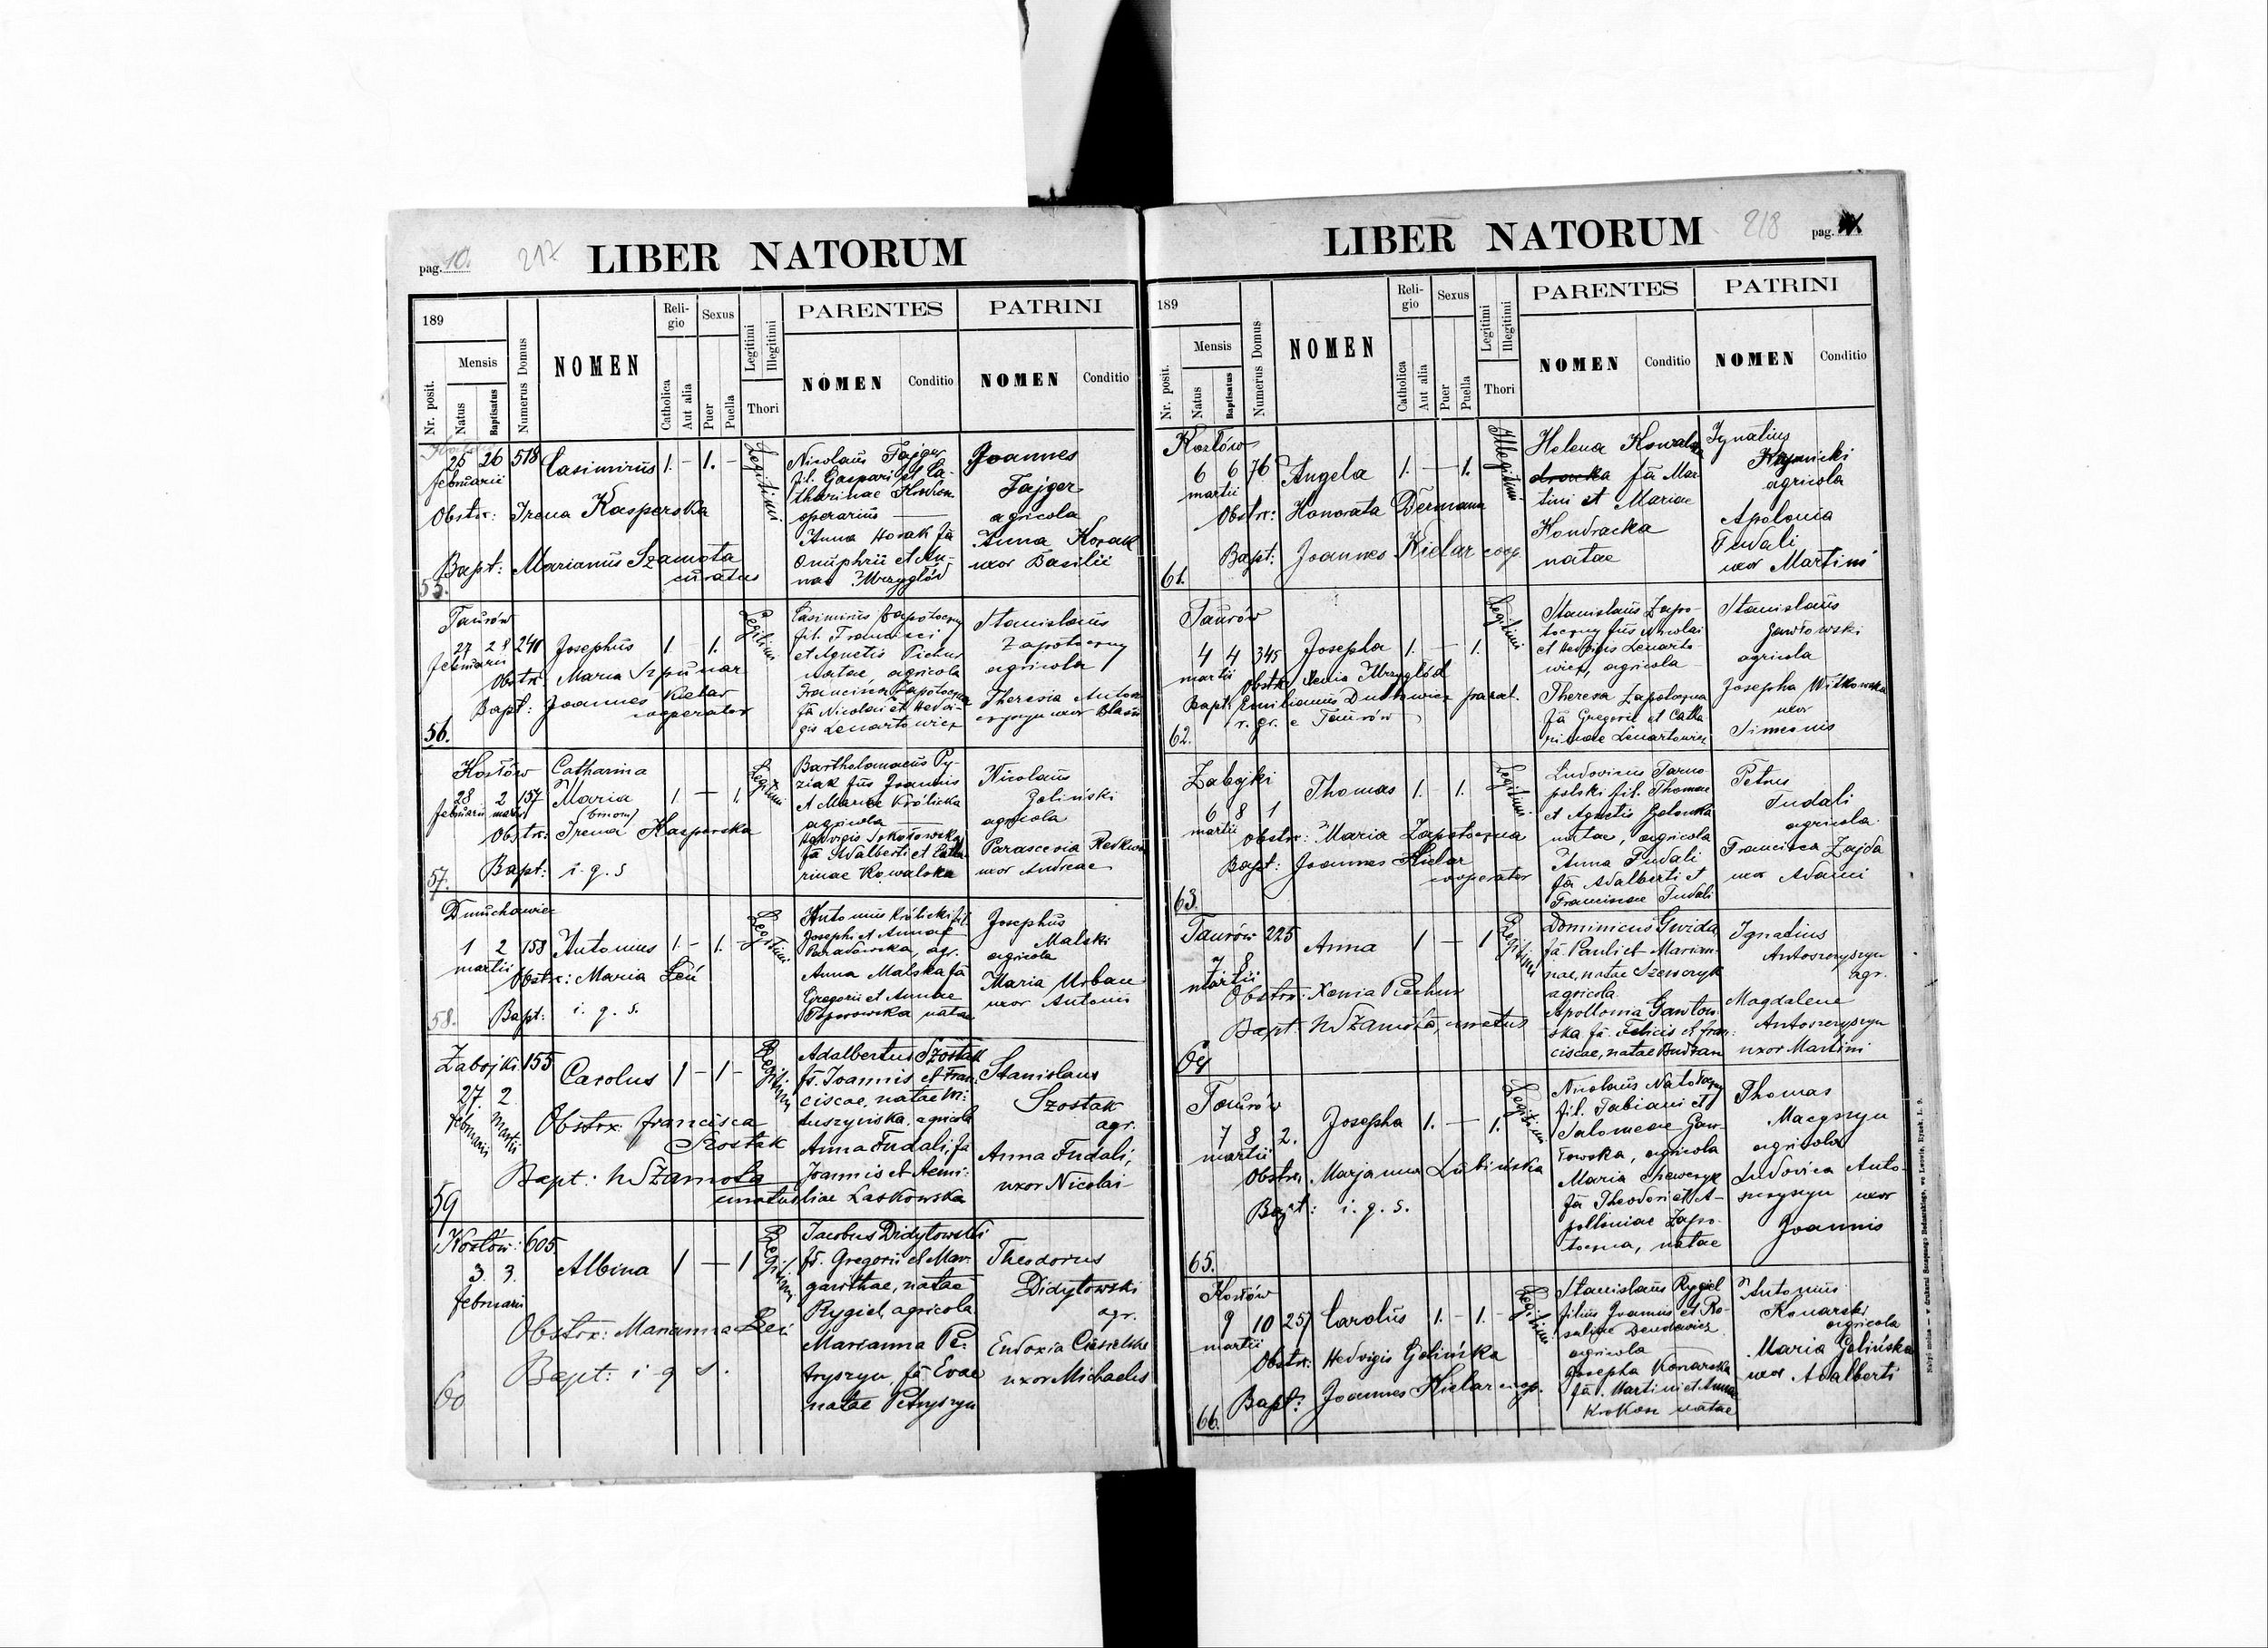 pag. 10. 217 LIBER NATORUM
189
Mensis
Nr. posit.
Natus
Baptisatus
Numerus Domus
NOMEN
Religio
Catholica
Aut alia
Sexus
Puer
Puella
Legitimi
Illegitimi
Thori
PARENTES
NOMEN Conditio
PATRINI
NOMEN Conditio
25 26 518 Casimirus 1. - 1. -
februarii
Obstr: Irena Kasperska
Bapt: Marianus Szamota
curatus
55.
Legitimi
Nicolaus Tajger
fil. Gaspari et Ca-
tharinae
operarius
Anna Horak fa
Onuphrii et An-
nae Mrzygłód
Joannes
Tajger
agricola
Anna Horak
uxor Basilii
Taurów
27 28 240 Josephus 1. - 1.
februarii
Obstr: Maria Szpunar
Bapt: Joannes Kielar
cooperator
56.
Legitimi
Casimirus Zapotoczny
fil. Francisci
et Agnetis Piechur
natae, agricola
Francisca Zapotoczna
fa Nicolai et Hedvi-
gis Lenartowicz
Stanislaus
Zapotoczny
agricola
Theresia Anton
uxor Blasii
Kozłów Catharina
28 2 157 Maria 1. - 1.
februarii martii (binom)
Obstr: Irena Kasperska
Bapt: i. q. s
57.
Legitimi
Bartholomaeus Py-
ziak fius Joannis
et Mariae Królicka
agricola
Hedvigis Sokołowska
fa Adalberti et Catha
rinae Kowalska
Nicolaus
Zoliński
agricola
Parascevia
uxor Andreae
Dmuchawiec
1 2 158 Antonius 1. - 1. -
martii
Obstr: Maria Leń
Bapt: i. q. s.
58.
Legitimi
Antonius Królicki fil.
Josephi et Annae
Paradowska, agr.
Anna Malska fa
Gregorii et Annae
Toporowska natae
Josephus
Malski
agricola
Maria Urban
uxor Antonii
Zabojki 155 Carolus 1 - 1 -
27. 2
februarii Martii
Obstrx: francisca
Szostak
Bapt: M Szamota
curatus
59
Legitimi
Adalbertus Szostak
fs. Joannis et Fran-
ciscae, natae
agricola
Anna Fudali, fa
Joannis et Aemi-
liae Laskowska
Stanislaus
Szostak
agr.
Anna Fudali,
uxor Nicolai
Kozłów: 605
3. 3. Albina 1 - 1
februarii
Obstrx: Marianna Leń
Bapt: i q s.
60
Legitimi
Jacobus Didytowski
fs. Gregorii et Mar-
garithae, natae
Rygiel, agricola
Marianna Pe-
tryszyn, fa Evae
natae Petryszyn
Theodorus
Didytowski
agr.
Eudoxia
uxor Michaelis
LIBER NATORUM 218 pag.
189
Mensis
Nr. posit.
Natus
Baptisatus
Numerus Domus
NOMEN
Religio
Catholica
Aut alia
Sexus
Puer
Puella
Legitimi
Illegitimi
Thori
PARENTES
NOMEN Conditio
PATRINI
NOMEN Conditio
Kozłów
6 6 76 Angela 1. - 1.
martii
Obstr: Honorata Dermann
Bapt: Joannes Kielar coop.
61.
Illegitimi
Helena
fa Mar-
tini et Mariae
Kondracka
natae
Ignatius
agricola
Apolonia
Fudali
uxor Martini
Taurów
4 4 345 Josepha 1. - 1.
martii
Obstr: Xenia Mrzygłód
Bapt: Emilianus Dutkiewicz
r. gr. e Taurów
62.
Legitimi
Stanislaus Zapo-
toczny fius Nicolai
et Hedvigis Lenarto-
wicz, agricola
Theresa Zapotoczna
fa Gregorii et Catha
rinae Lenartowicz
Stanislaus
Gawłowski
agricola
Josepha Witkowska
uxor
Simeonis
Zabojki
6 8 1 Thomas 1. - 1.
martii
Obstr: Maria Zapotoczna
Bapt: Joannes Kielar
cooperator
63.
Legitimi
Ludovicus Tarno-
polski fil. Thomae
et Agnetis
natae, agricola
Anna Fudali
fa Adalberti et
Franciscae Fudali
Petrus
Fudali
agricola
Francisca Zajda
uxor Adami
Taurów 225
7 8 Anna 1 - 1
martii
Obstrx: Xenia Piechur
Bapt: M Szamota, curatus
64
Legitimi
Dominicus Gwida,
fs. Pauli et Marian-
nae, natae
agricola
Apollonia Gawłow-
ska fa. Felicis et fran-
ciscae, natae
Ignatius
Antoszczyszyn
agr.
Magdalene
Antoszczyszyn
uxor Martini
Taurów
7 8 2. Josepha 1. - 1.
martii
Obstr: Marjanna Lubińska
Bapt: i. q. s.
65.
Legitimi
Nicolaus
fil. Fabiani et
Salomeae Gaw-
łowska, agricola
Maria Szewczyk
fa Theodori et A-
polloniae Zapo-
toczna, natae
Thomas
Macyszyn
agricola
Ludovica Anto-
szczyszyn uxor
Joannis
Kozłów
9 10 257 Carolus 1. - 1. -
martii
Obstr: Hedvigis Golińska
Bapt: Joannes Kielar coop.
66.
Legitimi
Stanislaus Rygiel
filius Joannis et Ro-
saliae
agricola
Josepha Konarska
fa. Martini et Annae
natae
Antonius
Konarski
agricola
Maria Golińska
uxor Adalberti